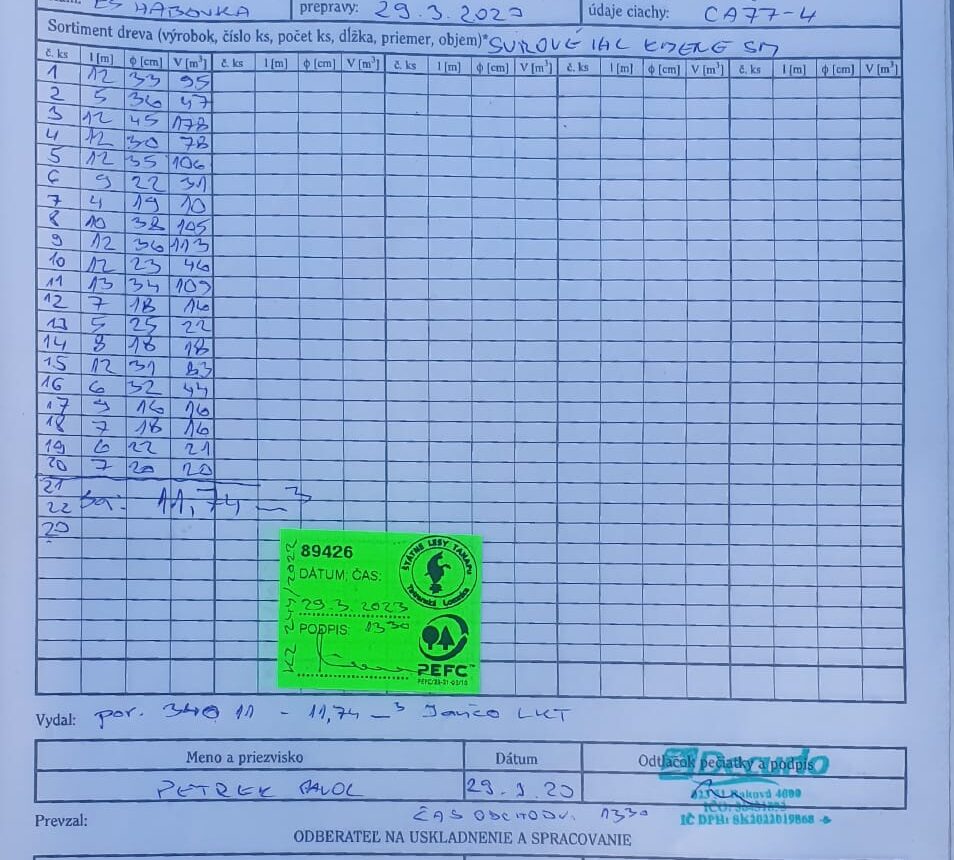 LS HABOVKA prepravy: 29.3.2023 údaje ciachy: CA77-4
Sortiment dreva (výrobok, číslo ks, počet ks, dĺžka, priemer, objem)* SUROVÉ IHL KMENE SM
č. ks l [m] ϕ [cm] V [m³] č. ks l [m] ϕ [cm] V [m³] č. ks l [m] ϕ [cm] V [m³] č. ks l [m] ϕ [cm] V [m³] č. ks l [m] ϕ [cm] V [m³]
1 12 33 95
2 5 36 47
3 12 45 178
4 12 30 78
5 12 35 106
6 9 22 31
7 4 19 10
8 10 38 105
9 12 36 113
10 12 23 46
11 13 34 109
12 7 18 16
13 5 25 22
14 8 18 18
15 12 31 83
16 6 32 44
17 9 16 16
18 7 18 16
19 6 22 21
20 7 20 20
21
22 11,74 m³
23
89426
DÁTUM, ČAS:
29.3.2023
PODPIS 1330
ŠTÁTNE LESY TANAPU
Tatranská Lomnica
PEFC™
Vydal: por. 340 11 - 11,74 m³ Jančo LKT
Meno a priezvisko Dátum Odtlačok pečiatky a podpis
PETREK PAVOL 29.3.23
023 51 Raková 4000
IČ DPH: SK2022019868
Prevzal: ČAS ODCHODU. 1330
ODBERATEĽ NA USKLADNENIE A SPRACOVANIE